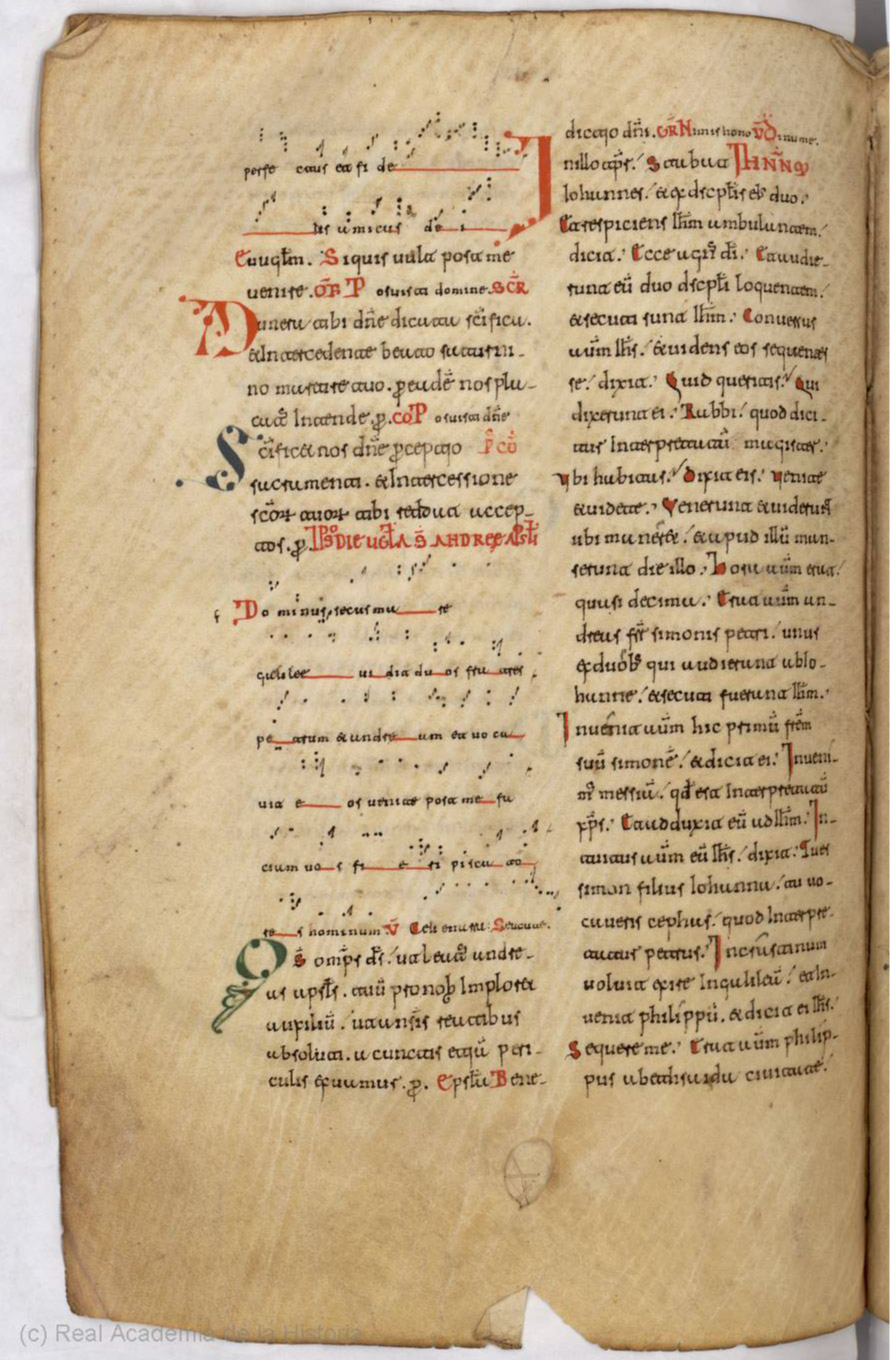 per fe ctus est fi de
lis amicus de i
Euuglm. Siquis uult post me
uenire. OFR P osuisti domine. SCR
Munera tibi dñe dicata scifica.
& Intercedente beato saturni-
no martire tuo. p eadē nos pla-
cat᷒ Intende. p. CO P osuisti dñe
Scificet nos dñe pceptjo P̄ CŌ
sacramenti. & Intercessione
scōr tuor tibi reddat accep-
tos. p. IPSO DIE UIGLA S̄ ANDREE APSTLI
Do minus secus ma re
galilee ui dit du os fra tres
pe trum & andre am et uo ca
uit e os uenite post me fa
ciam uo s fi e ri pisca to
re s hominum V̄ Celi enarra. Seuouae.
Qs̄ omps ds. ut beat᷒ andre-
as apsls. tuū pronob Imploret
auxiliū. ut a nsis reatibus
absoluti. a cunctis etiā peri-
culis exuamus. p. Epstla Bene-
dictjo dni. GR Nimis hono V̄D inume.
Inillo tps. Stabat
Iohannes. & ex dscplis eis duo.
Et respiciens Ihm ambulantem.
dicit. Ecce agn᷒ di. Et audie-
runt eū duo dscpli loquentem.
& secuti sunt Ihm. Conuersus
autm Ihs. & uidens eos sequentes
se. dixit. Quid queritis. Qui
dixerunt ei. Rabbi. quod dici-
tur Interpretatū magister.
ubi habitas. Dixit eis. uenite
& uidete. Venerunt & uiderunt
ubi maneret. & apud illū man-
serunt die illo. Hora autm erat
quasi decima. Erat autm an-
dreas fr simonis petri. unus
ex duobs qui audierunt ab Io-
hanne. & secuti fuerunt Ihm.
Inuenit autm hic primū frēm
suū simonē. & dicit ei. Inueni-
m᷒ messiā. qd est Interpretatū
xps. Et adduxit eū ad Ihm. In-
tuitus autm eū Ihs. dixit. Tu es
simon filius Iohanna. tu uo-
caueris cephas. quod Interpre-
tatur petrus. In crastinum
uoluit exire In galileā. et In-
uenit philippū. & dicit ei Ihs.
Sequere me. Erat autm philip-
pus a bethsaida ciuitate.
(c) Real Academia de la Historia